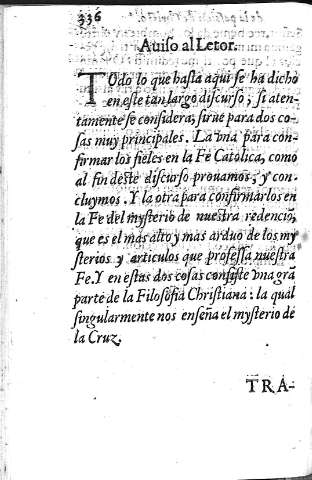 336
Auiso al Letor.
TOdo lo que hasta aqui se ha dicho
en este tan largo discurso, si aten-
tamente se considera, sirue para dos co-
sas muy principales. La vna para con-
firmar los fieles en la Fe Catolica, como
al fin deste discurso prouamos, y con-
cluymos. Y la otra para confirmarlos en
la Fe del mysterio de nuestra redenciõ,
que es el mas alto y mas arduo de los my
sterios y articulos que professa nuestra
Fe. Y en estas dos cosas consiste vna grã
parte de la Filosofia Christiana: la qual
singularmente nos enseña el mysterio de
la Cruz.
TRA-